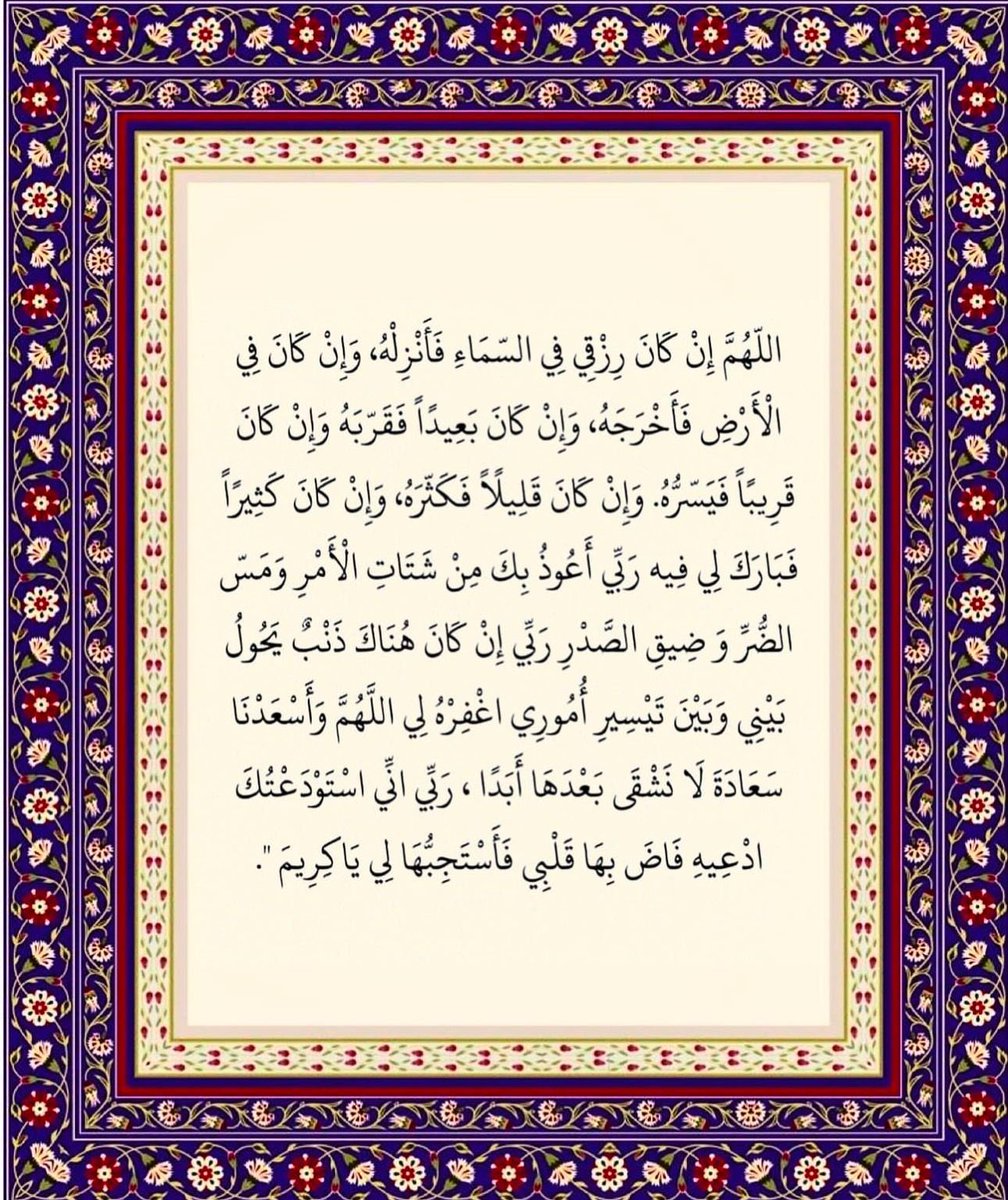 اللّهُمَّ إِنْ كَانَ رِزْقِي فِي السّمَاءِ فَأَنْزِلْهُ، وَإِنْ كَانَ فِي
الْأَرْضِ فَأَخْرَجَهُ، وَإِنْ كَانَ بَعِيدًاً فَقَرّبَهُ وَإِنْ كَانَ
قَرِيبًاً فَيَسّرُّهُ. وَإِنْ كَانَ قَلِيلًاً فَكَثّرَهُ، وَإِنْ كَانَ كَثِيرًاً
فَبَارَكَ لِي فِيه رَبِّي أَعُوذُ بِكَ مِنْ شَتَاتِ الْأَمْرِ وَمَسّ
الضُّرِّ وَ ضِيقِ الصَّدْرِ رَبِّي إِنْ كَانَ هُنَاكَ ذَنْبٌ يَحُولُ
بَيْنِي وَبَيْنَ تَيْسِيرِ أُمُورِي اغْفِرْهُ لِي اللَّهُمَّ وَأَسْعَدْنَا
سَعَادَةَ لَا نَشْقَى بَعْدَهَا أَبَدًا ، رَبِّي انِّي اسْتَوْدَعْتُكَ
ادْعِيهِ فَاضَ بِهَا قَلْبِي فَأَسْتَجِبُّهَا لِي يَاكِرِيمَ ".